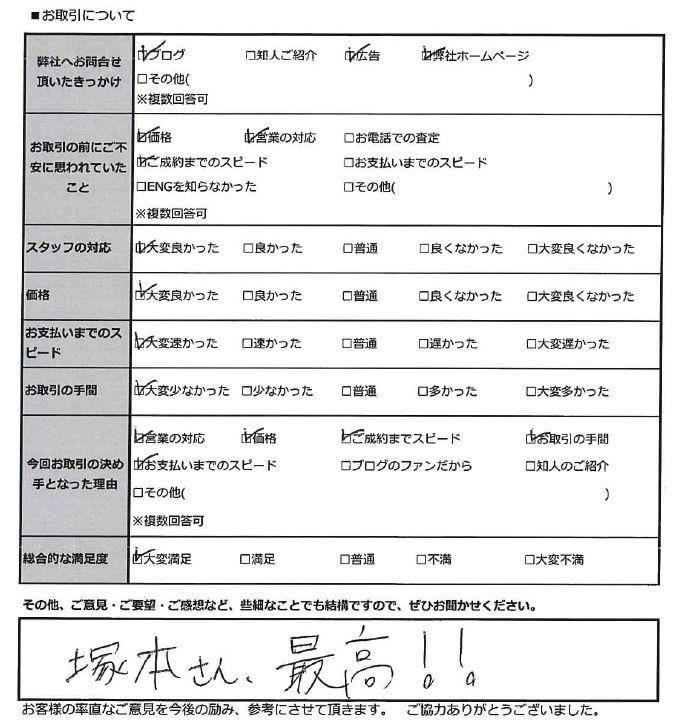 ■お取引について
弊社へお問合せ頂いたきっかけ
☑ブログ □知人ご紹介 ☑広告 ☑弊社ホームページ
□その他( )
※複数回答可
お取引の前にご不安に思われていたこと
☑価格 ☑営業の対応 □お電話での査定
☑ご成約までのスピード □お支払いまでのスピード
□ENGを知らなかった □その他( )
※複数回答可
スタッフの対応 ☑大変良かった □良かった □普通 □良くなかった □大変良くなかった
価格 ☑大変良かった □良かった □普通 □良くなかった □大変良くなかった
お支払いまでのスピード ☑大変速かった □速かった □普通 □遅かった □大変遅かった
お取引の手間 ☑大変少なかった □少なかった □普通 □多かった □大変多かった
今回お取引の決め手となった理由
☑営業の対応 ☑価格 ☑ご成約までスピード ☑お取引の手間
☑お支払いまでのスピード □ブログのファンだから □知人のご紹介
□その他( )
※複数回答可
総合的な満足度 ☑大変満足 □満足 □普通 □不満 □大変不満
その他、ご意見・ご要望・ご感想など、些細なことでも結構ですので、ぜひお聞かせください。
塚本さん、最高!!
お客様の率直なご意見を今後の励み、参考にさせて頂きます。 ご協力ありがとうございました。